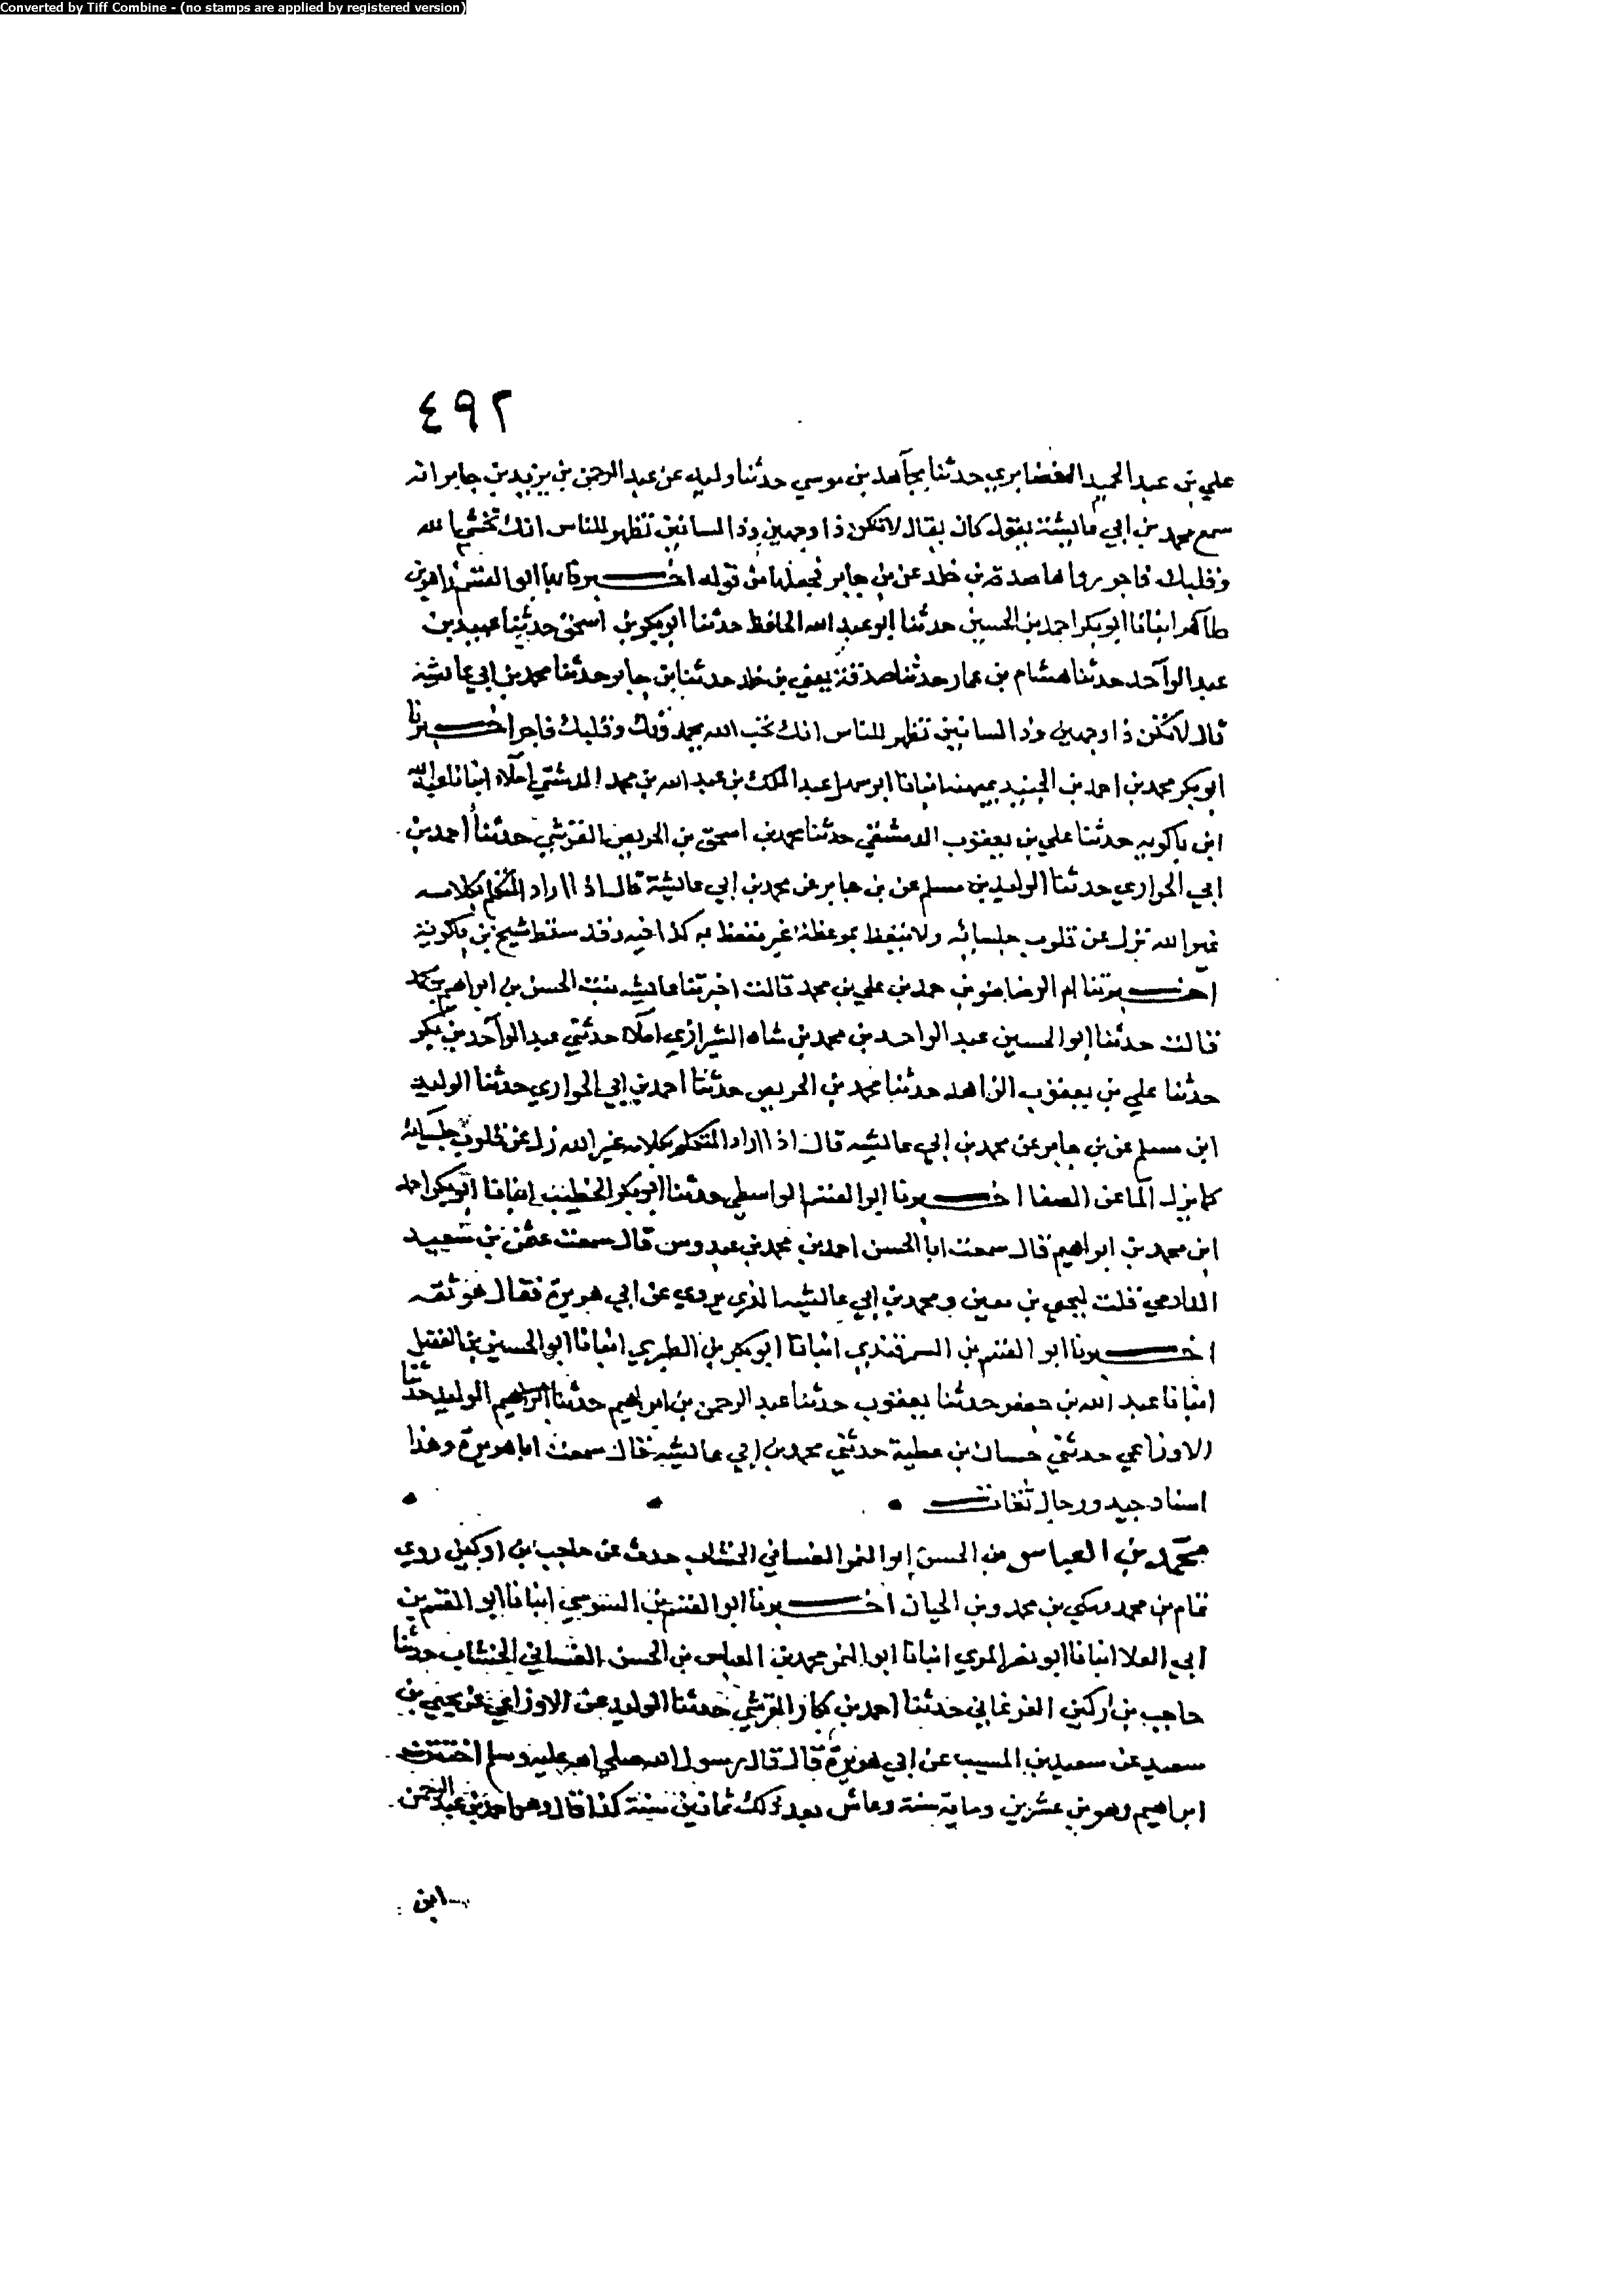 Converted by Tiff Combine - (no stamps are applied by registered version)
٤٩٢
علي بن عبد الحميد الغضايري حدثنا مجاهد بن موسي حدثنا وليد عن عبد الرحمن بن يزيد بن جابر انه
سمع محمد بن ابي عايشة يقول كان يقال لا تكن ذا وجهين وذا لسانين تظهر للناس انك تخشي الله
وقلبك فاجر رواها صدقة بن خلد عن بن جابر فجعلها من قوله اخبرنا بها ابو القسم زاهر بن
طاهر انبانا ابو بكر احمد بن الحسين حدثنا ابو عبد الله الحافظ حدثنا ابو بكر بن اسحق حدثنا عبيد بن
عبد الواحد حدثنا هشام بن عمار حدثنا صدقة يعني بن خلد حدثنا بن جابر حدثنا محمد بن ابي عايشة
قال لا تكن ذا وجهين وذا لسانين تظهر للناس انك تحب الله وقلبك فاجر اخبرنا
ابو بكر محمد بن احمد بن الجنيد بميهنة انبانا ابو سهل عبد الملك بن عبد الله بن محمد الدشتي املاء انبانا عبد الله
ابن باكويه حدثنا علي بن يعقوب الدمشقي حدثنا محمد بن اسحق بن الحريص القرشي حدثنا احمد بن
ابي الحواري حدثنا الوليد بن مسلم عن بن جابر عن محمد بن ابي عايشة قال اذا اراد المتكلم بكلامه
غير الله نزل عن قلوب جلسائه ولا تتعظ بموعظة غير متعظ به كذا فيه وقد سقط شيخ بن باكوية
اخبرتنا ام الرضا ضوء بن حمد بن علي بن محمد قالت اخبرتنا عايشة بنت الحسن بن ابراهيم بن محمد
قالت حدثنا ابو الحسين عبد الواحد بن محمد بن شاه الشيرازي املاء حدثني عبد الواحد بن بكر
حدثنا علي بن يعقوب الزاهد حدثنا محمد بن الحريص حدثنا احمد بن ابي الحواري حدثنا الوليد
ابن مسلم عن بن جابر عن محمد بن ابي عايشة قال اذا اراد المتكلم بكلامه غير الله زل عن قلوب جلسائه
كما يزل الما عن الصفا اخبرنا ابو القسم الواسطي حدثنا ابو بكر الخطيب انبانا ابو بكر احمد
ابن محمد بن ابراهيم قال سمعت ابا الحسن احمد بن محمد بن عبدوس قال سمعت عثمن بن سعيد
الدارمي قلت ليحيي بن معين ومحمد بن ابي عايشة الذي يروي عن ابي هريرة فقال هو ثقه
اخبرنا ابو القسم بن السمرقندي انبانا ابو بكر بن الطبري انبانا ابو الحسين بن الفضل
انبانا عبد الله بن جعفر حدثنا يعقوب حدثنا عبد الرحمن بن ابراهيم حدثنا الوليد حدثنا
الاوزاعي حدثني حسان بن عطية حدثني محمد بن ابي عايشة قال سمعت ابا هريرة وهذا
اسناد جيد ورجال ثقات
محمد بن العباس بن الحسن ابو النمر الغساني الخشاب حدث عن حاجب بن اركين روي
تمام بن محمد ومكي بن محمد وبن الجبان اخبرنا ابو القسم بن السوسي انبانا ابو القسم بن
ابي العلا انبانا ابو نصر المري انبانا ابو النمر محمد بن العباس بن الحسن الغساني الخشاب حدثنا
حاجب بن اركين الفرغاني حدثنا احمد بن بكار القرشي حدثنا الوليد عن الاوزاعي عن يحيي بن
سعيد عن سعيد بن المسيب عن ابي هريرة قال قال رسول الله صلي الله عليه وسلم اختتن
ابراهيم وهو بن عشرين وماية سنة وعاش بعد ذلك ثمانين سنة كذا قال وهو احمد بن عبد الرحمن
ابن